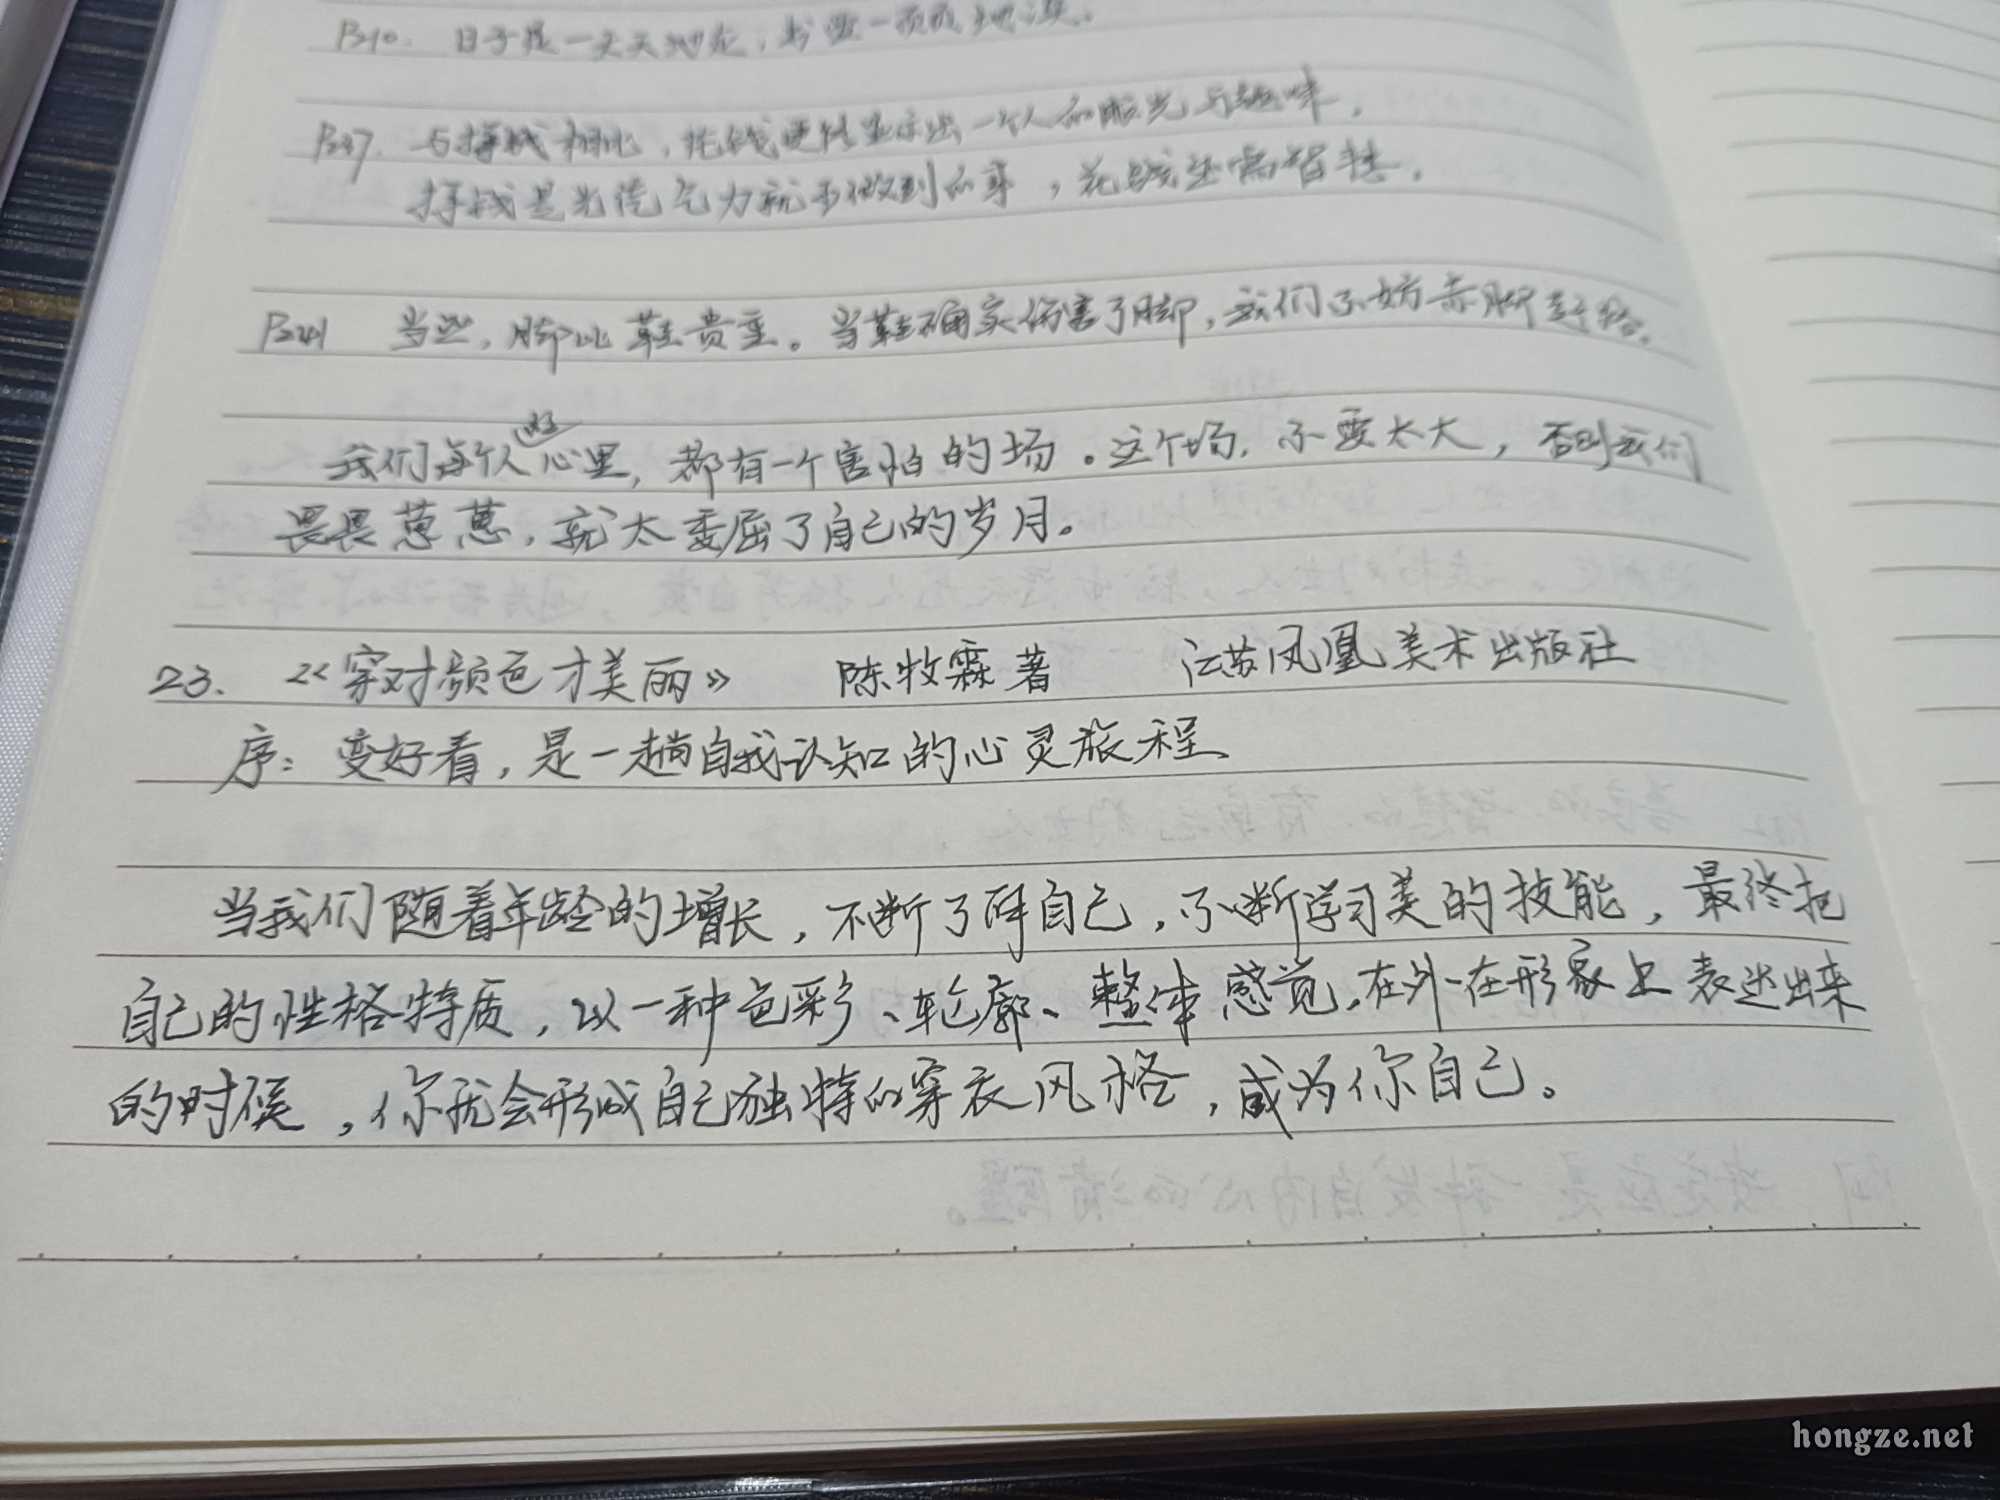 P210. 日子是一天天地走，书要一页页地读。
P237. 与挣钱相比，花钱更能显示出一个人的眼光与趣味。
挣钱是光凭气力就可做到的事，花钱还需智慧。
P241 当然，脚比鞋贵重。当鞋确实伤害了脚，我们不妨赤脚赶路。
我们每个人的心里，都有一个害怕的场。这个场，不要太大，否则我们
畏畏葸葸，就太委屈了自己的岁月。
23. 《穿对颜色才美丽》 陈牧霖著 江苏凤凰美术出版社
序：变好看，是一趟自我认知的心灵旅程、
当我们随着年龄的增长，不断了解自己，不断学习美的技能，最终把
自己的性格特质，以一种色彩、轮廓、整体感觉，在外在形象上表达出来
的时候，你就会形成自己独特的穿衣风格，成为你自己。
hongze.net